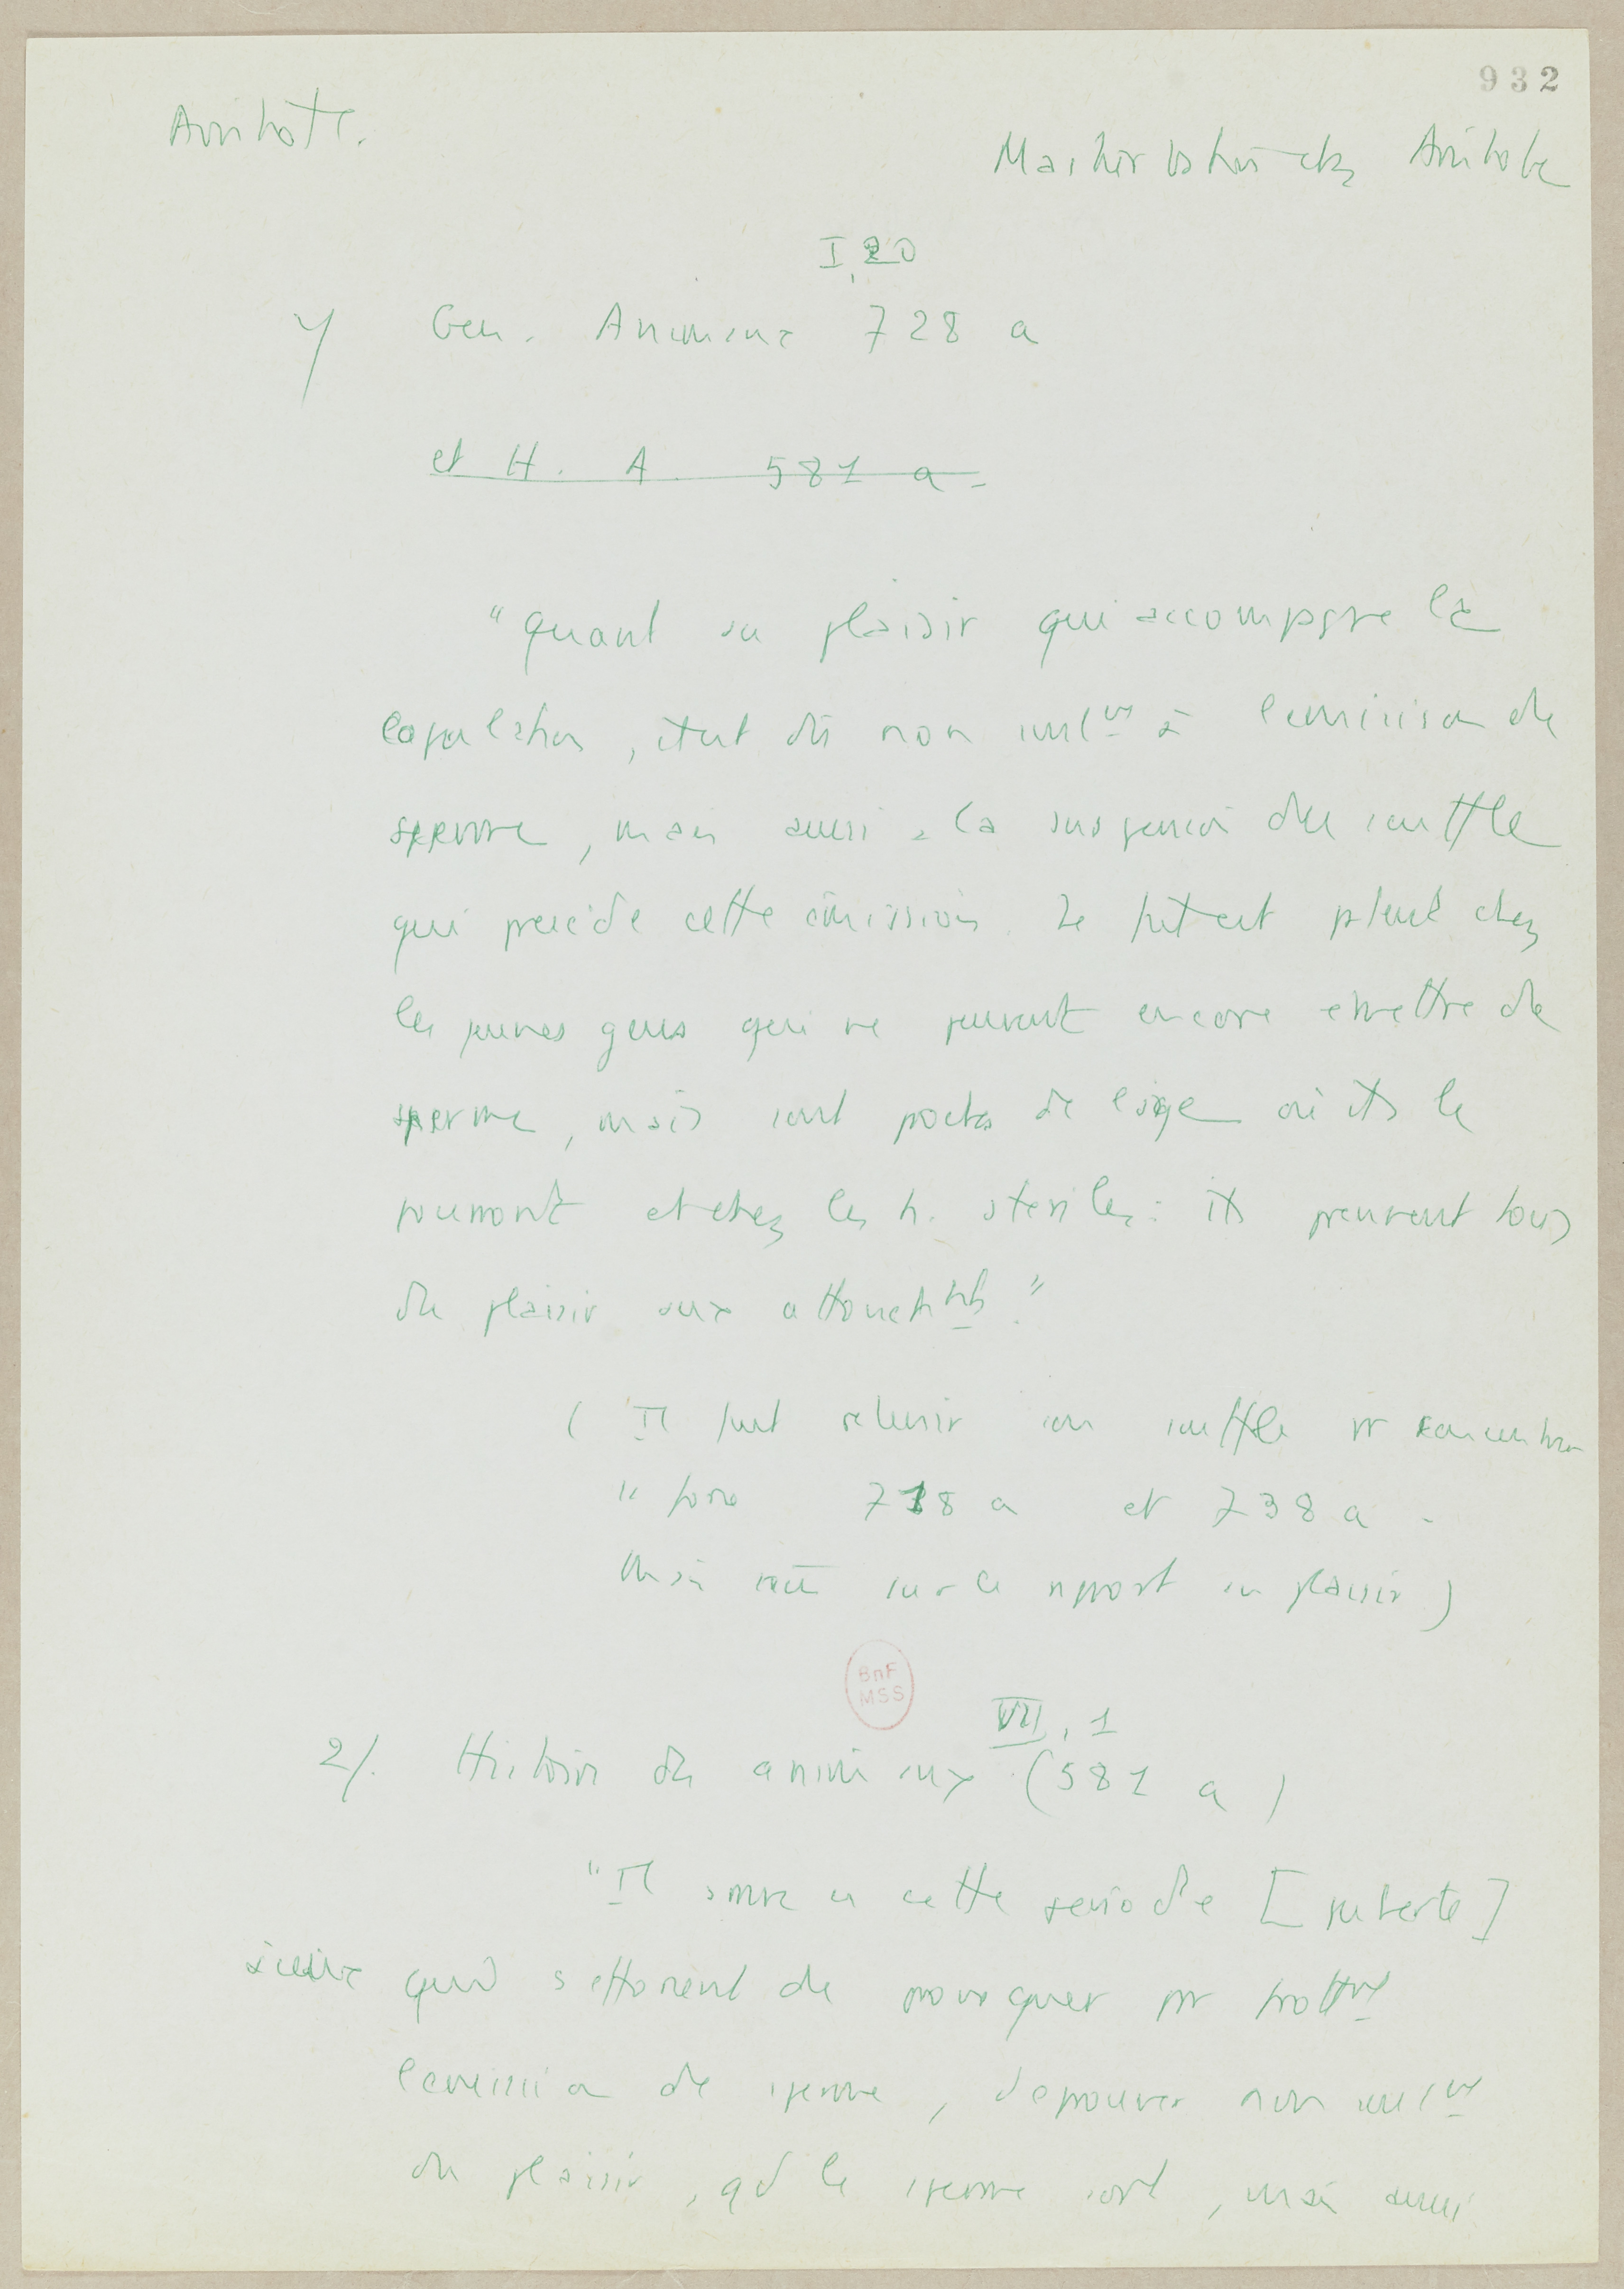 932
Aristote.
Masturbation chez Aristote
I, 20
1/ Gen. Animaux 728 a
et H. A. 581 a -
"Quant au plaisir qui accompagne la
copulation, il est dû non seult à l'emission de
sperme, mais aussi à la suspension du souffle
qui precède cette émission. Le fait est patent chez
les jeunes gens qui ne peuvent encore emettre de
sperme, mais sont proches de l'age où ils le
pourront et chez les h. steriles : ils prennent tous
du plaisir aux attouchmts."
( Il faut retenir son souffle pr
" force 718 a et 738 a -
Mais rien sur le rapport au plaisir )
BnF
MSS
VII, 1
2/. Histoire des animaux (581 a)
"Il arrive en cette periode [puberté]
à ceux qui s'efforcent de provoquer par frottmt
l'emission de sperme, d'eprouver non seult
du plaisir, qd le sperme sort, mais aussi